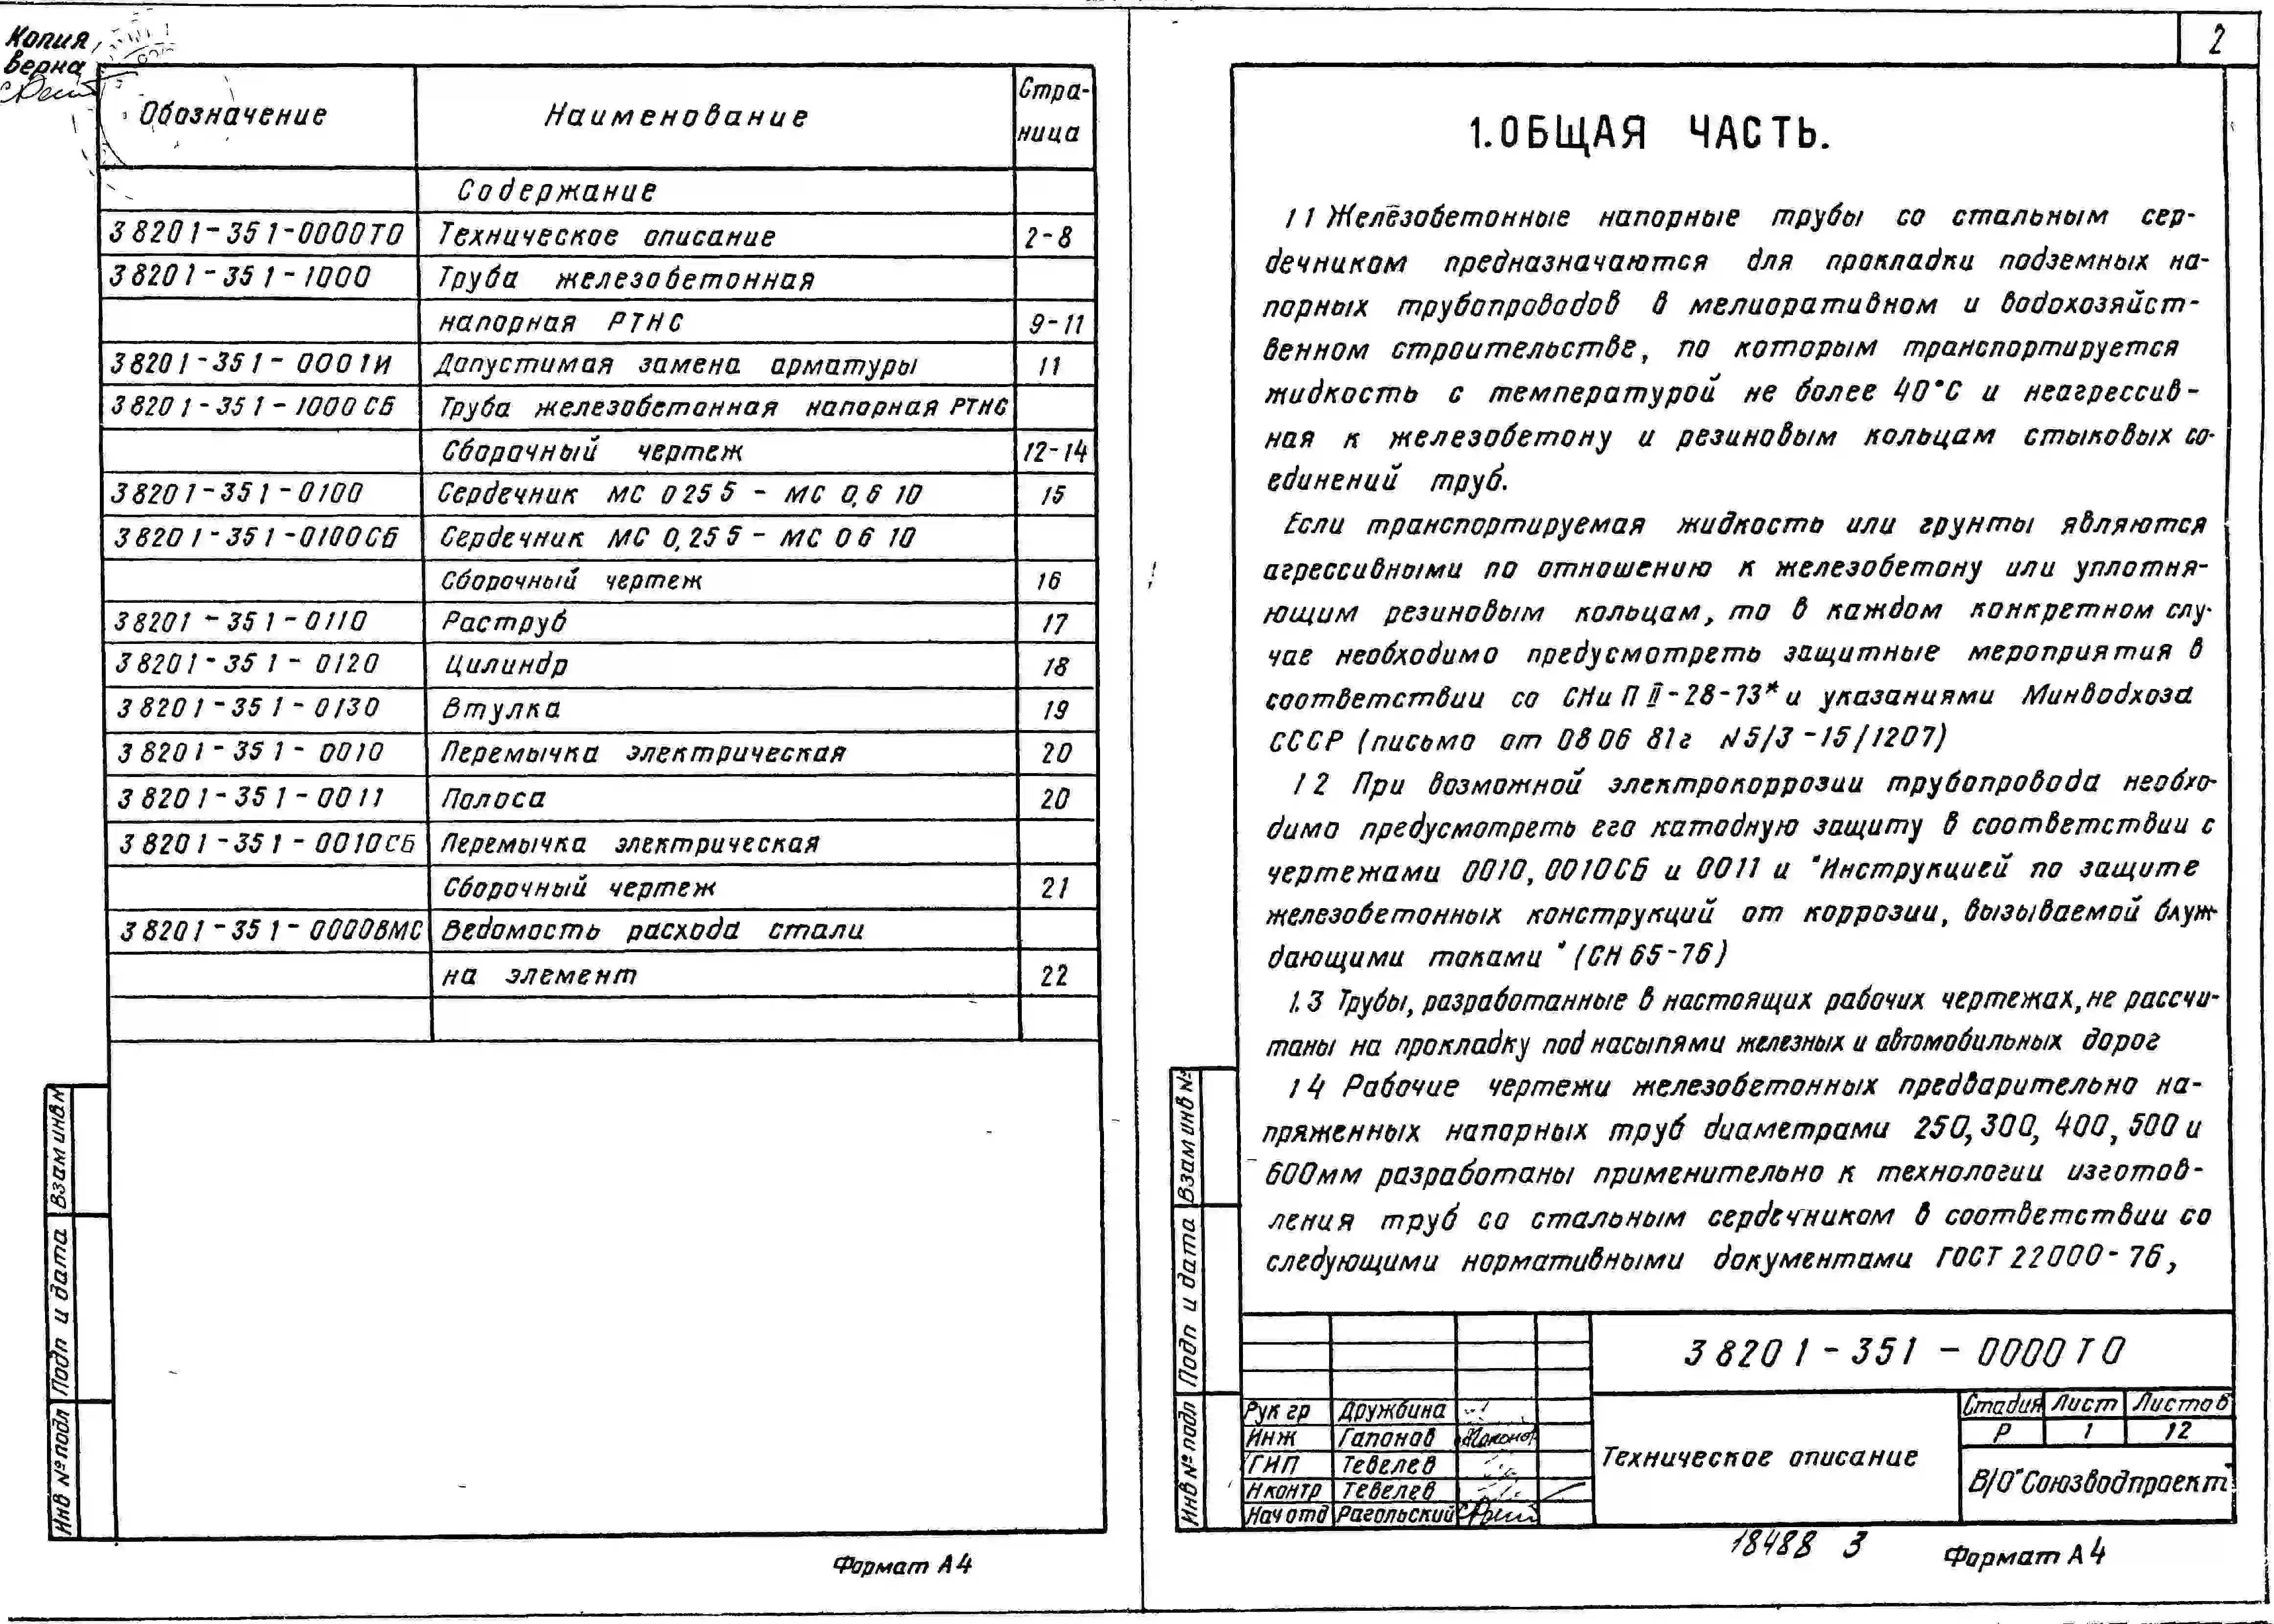 Копия
верна
Обозначение Наименование Стра-
ница
Содержание
3 8201-351-0000ТО Техническое описание 2-8
3 8201-351-1000 Труба железобетонная
напорная РТНС 9-11
3 8201-351-0001И Допустимая замена арматуры 11
3 8201-351-1000СБ Труба железобетонная напорная РТНС
Сборочный чертеж 12-14
3 8201-351-0100 Сердечник МС 025 5 - МС 0,6 10 15
3 8201-351-0100СБ Сердечник МС 0,25 5 - МС 06 10
Сборочный чертеж 16
3 8201-351-0110 Раструб 17
3 8201-351-0120 Цилиндр 18
3 8201-351-0130 Втулка 19
3 8201-351-0010 Перемычка электрическая 20
3 8201-351-0011 Полоса 20
3 8201-351-0010СБ Перемычка электрическая
Сборочный чертеж 21
3 8201-351-0000ВМС Ведомость расхода стали
на элемент 22
Взам инв №
Подп и дата
Инв № подл
Формат А4
2
1. ОБЩАЯ ЧАСТЬ.
1 1 Железобетонные напорные трубы со стальным сер-
дечником предназначаются для прокладки подземных на-
порных трубопроводов в мелиоративном и водохозяйст-
венном строительстве, по которым транспортируется
жидкость с температурой не более 40°С и неагрессив-
ная к железобетону и резиновым кольцам стыковых со-
единений труб.
Если транспортируемая жидкость или грунты являются
агрессивными по отношению к железобетону или уплотня-
ющим резиновым кольцам, то в каждом конкретном слу-
чае необходимо предусмотреть защитные мероприятия в
соответствии со СНиП II-28-73* и указаниями Минводхоза
СССР (письмо от 08 06 81г №5/3-15/1207)
1 2 При возможной электрокоррозии трубопровода необхо-
димо предусмотреть его катодную защиту в соответствии с
чертежами 0010, 0010СБ и 0011 и "Инструкцией по защите
железобетонных конструкций от коррозии, вызываемой блуж
дающими токами" (СН 65-76)
1.3 Трубы, разработанные в настоящих рабочих чертежах, не рассчи-
таны на прокладку под насыпями железных и автомобильных дорог
1 4 Рабочие чертежи железобетонных предварительно на-
пряженных напорных труб диаметрами 250, 300, 400, 500 и
600мм разработаны применительно к технологии изготов-
ления труб со стальным сердечником в соответствии со
следующими нормативными документами ГОСТ 22000-76,
Взам инв №
Подп и дата
Инв № подл
3 8201-351-0000ТО
Рук гр Дружбина
Инж Гапонов
ГИП Тевелев
Н контр Тевелев
Нач отд Рагольский
Техническое описание
Стадия Лист Листов
Р 1 12
В/О"Союзводпроект"
18488 3
Формат А4